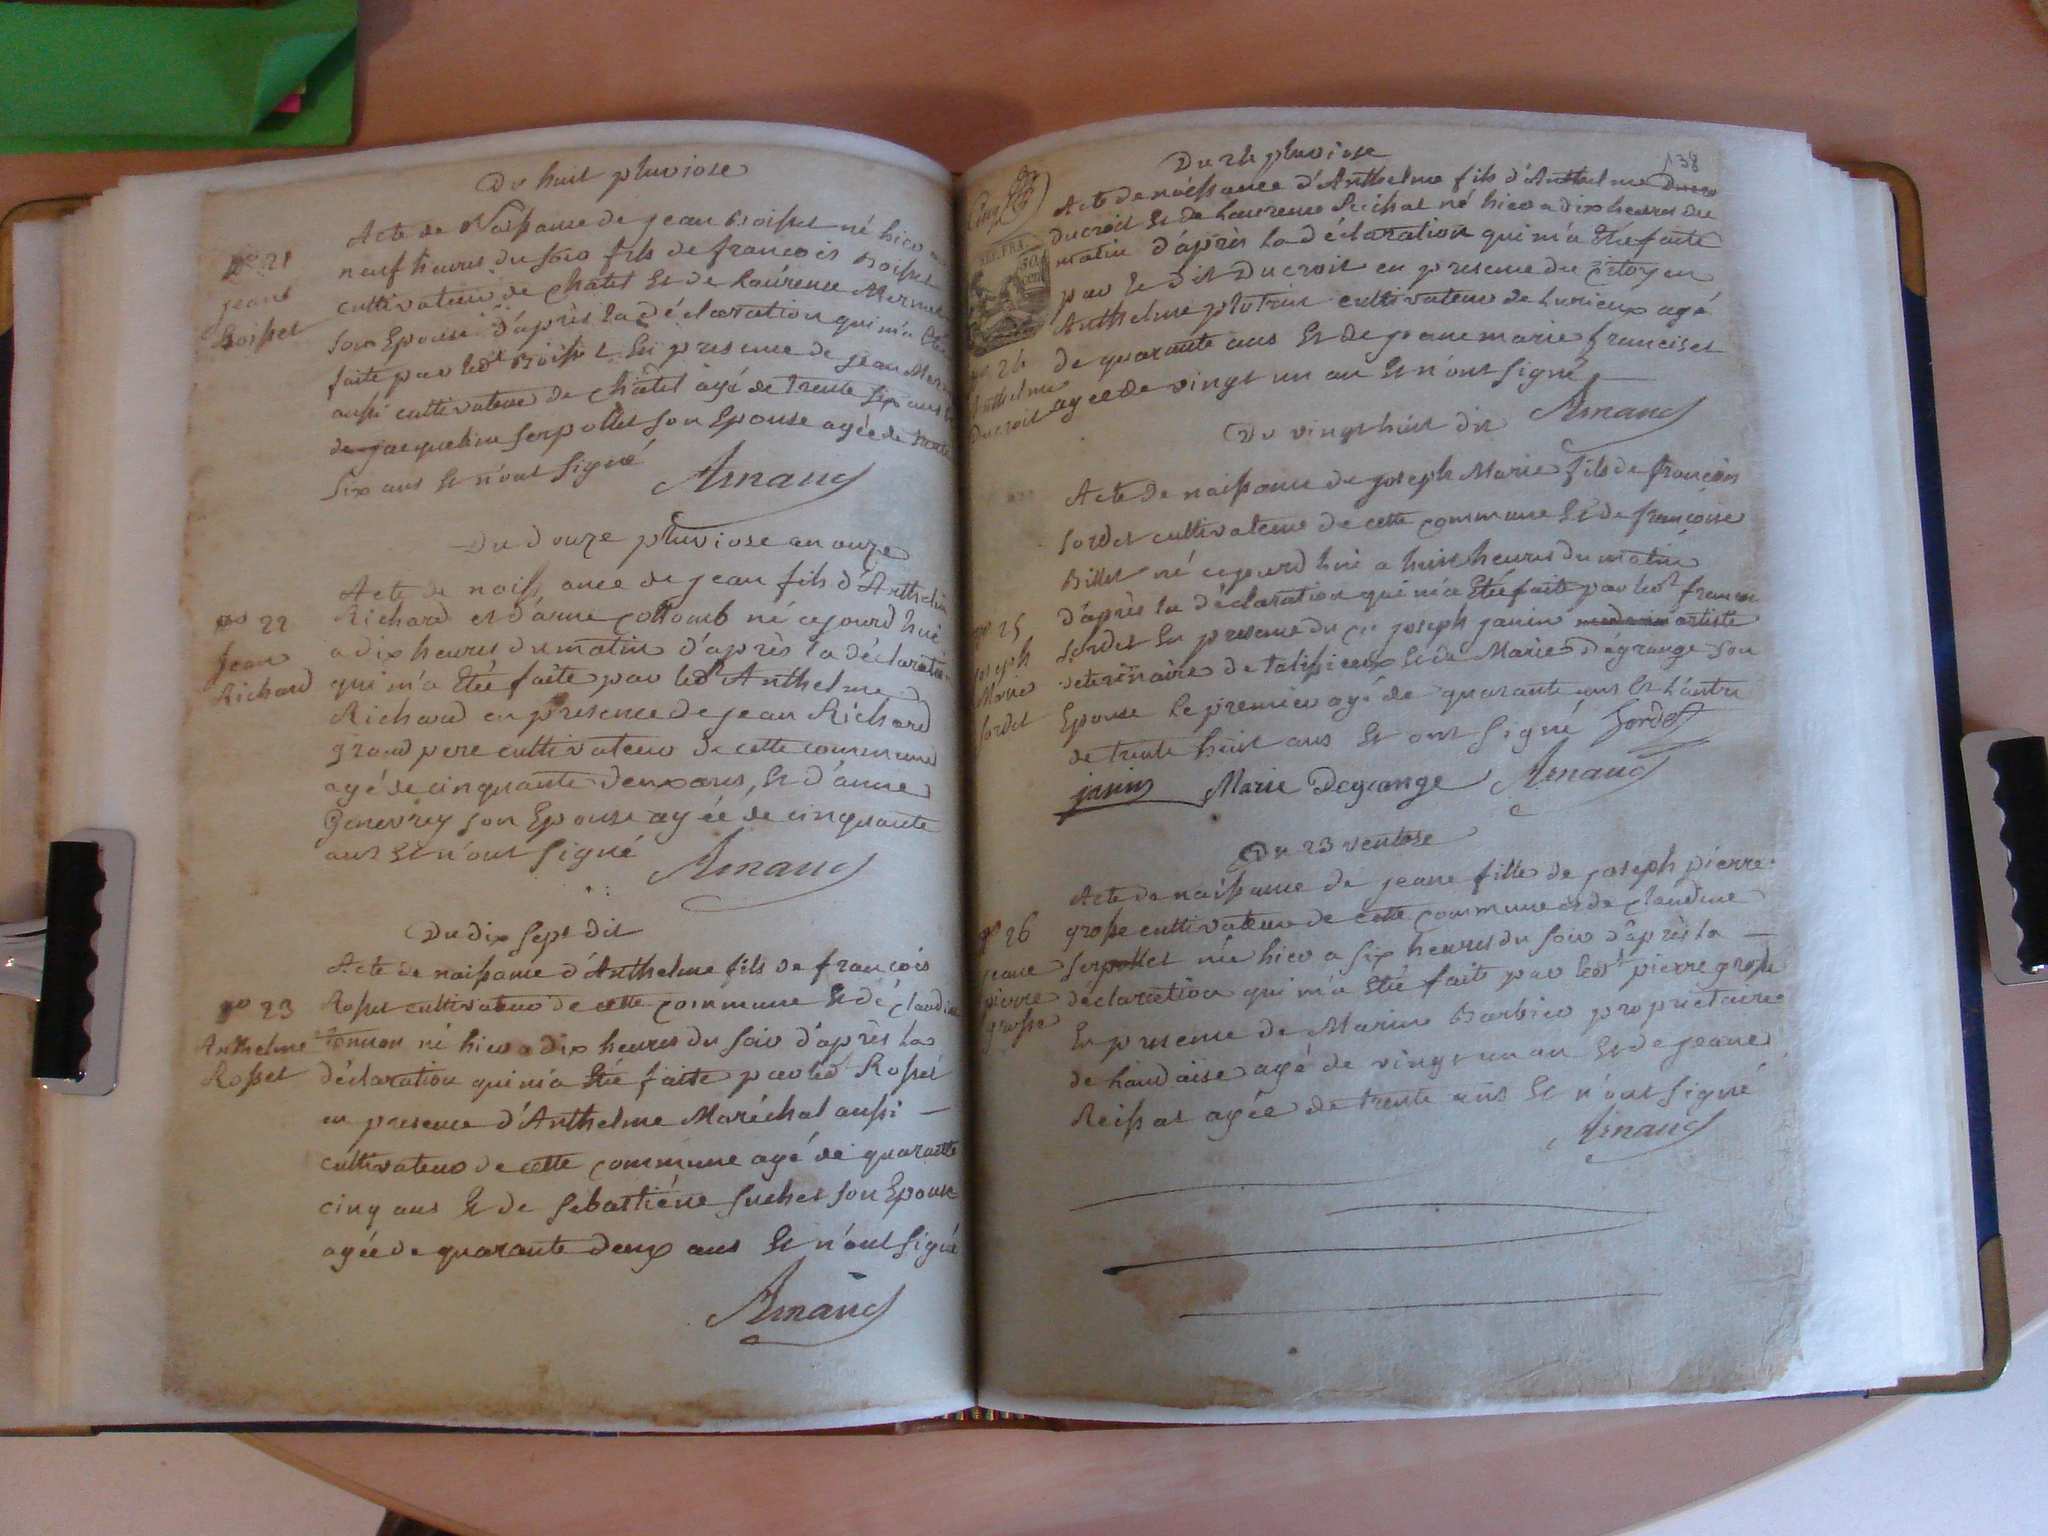 Du huit pluviose
Acte de Naissance de jean Boisset né hier a
neuf heures du soir fils de francois Boisset
cultivateur de Châtel Et de Laurence Mermet
son Epouse d'après la déclaration qui m'a Eté
faite par led.t Boisset En presence de jean Mer
aussi cultivateur de Châtel agé de trente six ans Et
de jacqueline Serpollet son Epouse agée de trente
six ans Et n'ont signé
Arnaud
n.o 21
jean
Boisset
Du douze pluviose an onze
Acte de naissance de jean fils d'Anthelme
Richard et d'anne Collomb né cejourd'hui
a dix heures du matin d'après la déclaration
qui m'a Eté faite par led.t Anthelme
Richard en presence de jean Richard
grand pere cultivateur de cette commune
agé de cinquante deux ans, Et d'anne
Genevrey son Epouse agée de cinquante
ans Et n'ont signé
Arnaud
n.o 22
jean
Richard
Du dix sept dit
Acte de naissance d'Anthelme fils de françois
Rosset cultivateur de cette commune Et de claudine
né hier a dix heures du soir d'après la
déclaration qui m'a Eté faite par led.t Rosset
en presence d'Anthelme Maréchal aussi
cultivateur de cette commune agé de quarante
cinq ans Et de Sébastiéne Suchet son Epouse
agée de quarante deux ans Et n'ont signé
Arnaud
n.o 23
Anthelme
Rosset
138
Du 24 pluviose
Acte de naissance d'Anthelme fils d'Anthelme
Ducroit Et de Laurence né hier a dix heures du
matin d'après la déclaration qui m'a Eté faite
par le dit Ducroit en presence du Citoyen
Anthelme cultivateur de Lurieux agé
de quarante ans Et de jeanne marie franciset
agée de vingt un an Et n'ont signé
Arnaud
REP. FRA.
50
cen
n.o 24
Anthelme
Ducroit
Du vingt huit dit
Acte de naissance de joseph Marie fils de françois
Sordet cultivateur de cette commune Et de françoise
Billet né cejourd'hui a huit heures du matin
d'après la déclaration qui m'a Eté faite par led.t francois
Sordet En presence du C.en joseph janin artiste
veterinaire de talissieux Et de Marie Dégrange son
Epouse le premier agé de quarante ans Et l'autre
de trente huit ans Et ont signé Sordet
janin Marie Degrange Arnaud
n.o 25
joseph
Marie
Sordet
Du 23 ventose
Acte de naissance de jeane fille de joseph pierre
grosse cultivateur de cette commune et de claudine
Serpollet née hier a six heures du soir d'après la
déclaration qui m'a Eté faite par led.t pierre grosse
En presence de Marin Barbier proprietaire
de agé de vingt un an Et de jeane
Reissat agée de trente ans Et n'ont signé
Arnaud
n.o 26
jeane
pierre
grosse